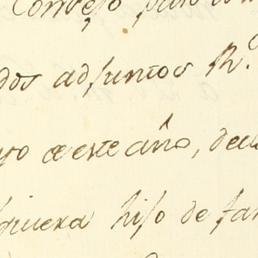 Consejo para
dos adjuntos R.
yo de este año, de
guiera hijo de fa